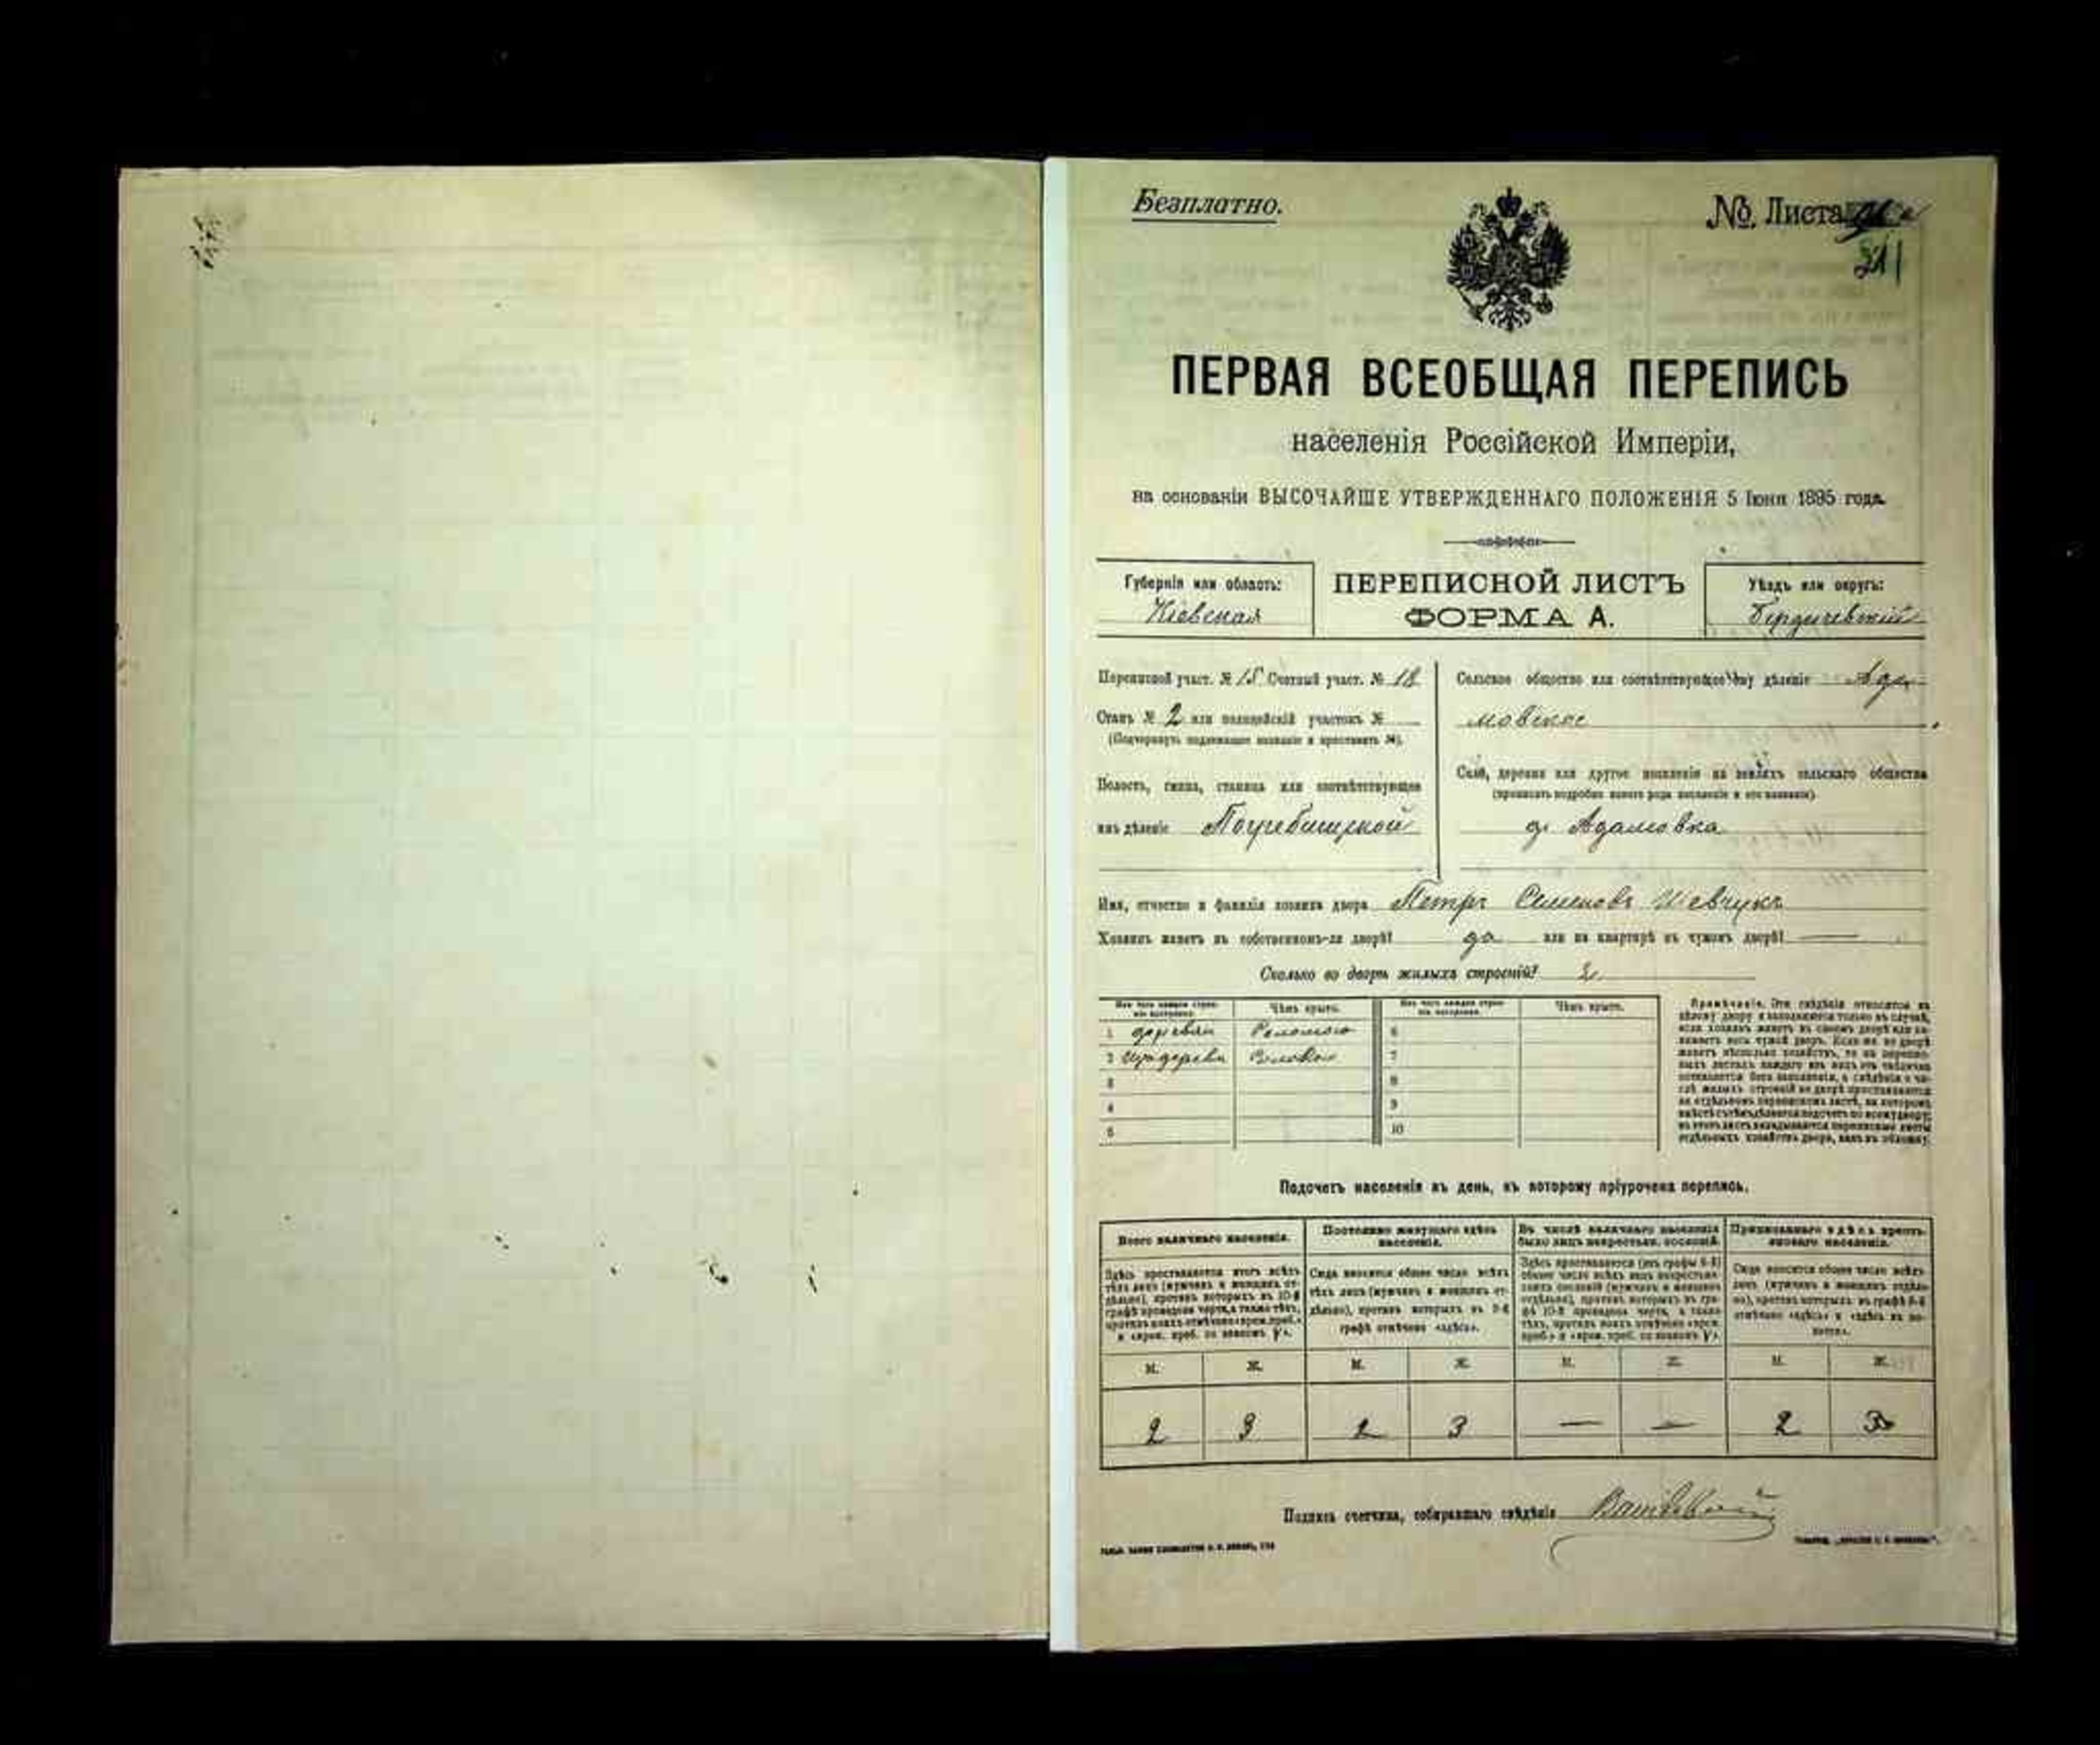 Безплатно.
№ Листа
211
ПЕРВАЯ ВСЕОБЩАЯ ПЕРЕПИСЬ
населенія Россійской Имперіи,
на основаніи ВЫСОЧАЙШЕ УТВЕРЖДЕННАГО ПОЛОЖЕНІЯ 5 Іюня 1895 года.
Губернія или область:
Кіевская
ПЕРЕПИСНОЙ ЛИСТЪ
ФОРМА А.
Уѣздъ или округъ:
Бердичевскій
Переписной участ. № 15 Счетный участ. № 18
Станъ № 2 или полицейскій участокъ №
(Подчеркнуть подлежащее названіе и проставить №).
Волость, гмина, станица или соотвѣтствующее
имъ дѣленіе Погребищской
Сельское общество или соотвѣтствующее ему дѣленіе Ада-
мовское
Село, деревня или другое поселеніе на земляхъ сельскаго общества
(прописать подробно какого рода поселеніе и его названіе)
д. Адамовка
Имя, отчество и фамилія хозяина двора Петръ Семеновъ Шевчукъ
Хозяинъ живетъ въ собственномъ-ли дворѣ? да или на квартирѣ въ чужомъ дворѣ? —
Сколько во дворѣ жилыхъ строеній? 2
Изъ чего каждое строе-
ніе построено.
Чѣмъ крыто.
Изъ чего каждое строе-
ніе построено.
Чѣмъ крыто.
1 деревян Соломою 6
2 7
3 8
4 9
5 10
Примѣчаніе. Эти свѣдѣнія относятся къ
цѣлому двору и заполняются только въ случаѣ,
если хозяинъ живетъ въ своемъ дворѣ или за-
нимаетъ весь чужой дворъ. Если же во дворѣ
живетъ нѣсколько хозяйствъ, то на перепис-
ныхъ листахъ каждаго изъ нихъ эта табличка
оставляется безъ заполненія, а свѣдѣнія о чи-
слѣ жилыхъ строеній во дворѣ проставляются
на отдѣльномъ переписномъ листѣ, на которомъ
вмѣстѣ съ тѣмъ дѣлается подсчетъ по всему двору;
въ этотъ листъ вкладываются переписные листы
отдѣльныхъ хозяйствъ двора, какъ въ обложку.
Подсчетъ населенія въ день, къ которому пріурочена перепись.
Всего наличнаго населенія.
Постоянно живущаго здѣсь
населенія.
Въ числѣ наличнаго населенія
было лицъ некрестьян. сословій.
Приписаннаго здѣсь крестъ-
янскаго населенія.
Здѣсь проставляется итогъ всѣхъ
тѣхъ лицъ (мужчинъ и женщинъ от-
дѣльно), противъ которыхъ въ 10-й
графѣ проведена черта, а также тѣхъ,
противъ коихъ отмѣчено «врем. преб.»
Сюда вносится общее число всѣхъ
тѣхъ лицъ (мужчинъ и женщинъ от-
дѣльно), противъ которыхъ въ 9-й
графѣ отмѣчено «здѣсь».
Сюда вносится общее число всѣхъ
лицъ (мужчинъ и женщинъ отдѣль-
но), противъ которыхъ въ графѣ 8-й
м. ж. м. ж. м. ж. м. ж.
2 3 2 3 — — 2 3
Подпись счетчика, собиравшаго свѣдѣнія